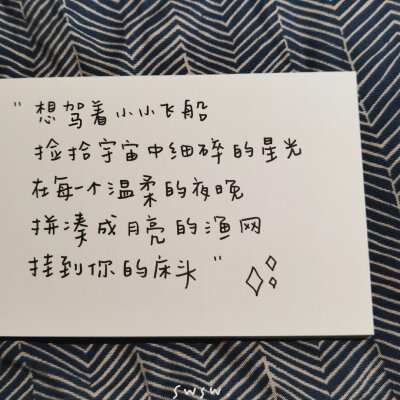 "想驾着小小飞船
捡拾宇宙中细碎的星光
在每一个温柔的夜晚
拼凑成月亮的渔网
挂到你的床头"
swsw